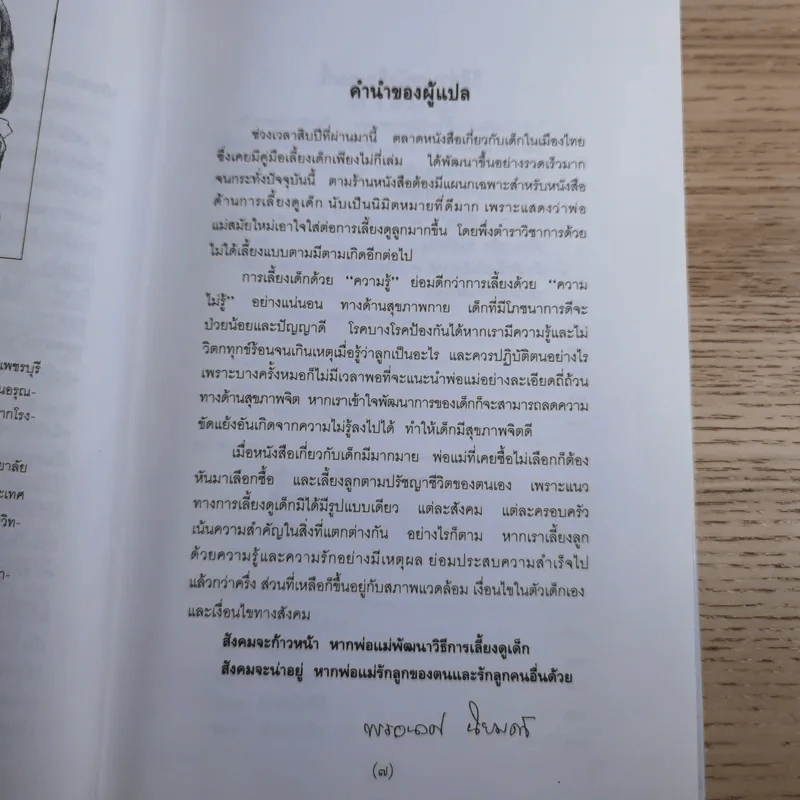 เพชรบุรี
นอรุณ-
ากโรง-
ยาลัย
ะเทศ
วิท-
า-
คำนำของผู้แปล
ช่วงเวลาสิบปีที่ผ่านมานี้ ตลาดหนังสือเกี่ยวกับเด็กในเมืองไทย
ซึ่งเคยมีคู่มือเลี้ยงเด็กเพียงไม่กี่เล่ม ได้พัฒนาขึ้นอย่างรวดเร็วมาก
จนกระทั่งปัจจุบันนี้ ตามร้านหนังสือต้องมีแผนกเฉพาะสำหรับหนังสือ
ด้านการเลี้ยงดูเด็ก นับเป็นนิมิตหมายที่ดีมาก เพราะแสดงว่าพ่อ
แม่สมัยใหม่เอาใจใส่ต่อการเลี้ยงดูลูกมากขึ้น โดยพึ่งตำราวิชาการด้วย
ไม่ได้เลี้ยงแบบตามมีตามเกิดอีกต่อไป
การเลี้ยงเด็กด้วย “ความรู้” ย่อมดีกว่าการเลี้ยงด้วย “ความ
ไม่รู้” อย่างแน่นอน ทางด้านสุขภาพกาย เด็กที่มีโภชนาการดีจะ
ป่วยน้อยและปัญญาดี โรคบางโรคป้องกันได้หากเรามีความรู้และไม่
วิตกทุกข์ร้อนจนเกินเหตุเมื่อรู้ว่าลูกเป็นอะไร และควรปฏิบัติตนอย่างไร
เพราะบางครั้งหมอก็ไม่มีเวลาพอที่จะแนะนำพ่อแม่อย่างละเอียดถี่ถ้วน
ทางด้านสุขภาพจิต หากเราเข้าใจพัฒนาการของเด็กก็จะสามารถลดความ
ขัดแย้งอันเกิดจากความไม่รู้ลงไปได้ ทำให้เด็กมีสุขภาพจิตดี
เมื่อหนังสือเกี่ยวกับเด็กมีมากมาย พ่อแม่ที่เคยซื้อไม่เลือกก็ต้อง
หันมาเลือกซื้อ และเลี้ยงลูกตามปรัชญาชีวิตของตนเอง เพราะแนว
ทางการเลี้ยงดูเด็กมิได้มีรูปแบบเดียว แต่ละสังคม แต่ละครอบครัว
เน้นความสำคัญในสิ่งที่แตกต่างกัน อย่างไรก็ตาม หากเราเลี้ยงลูก
ด้วยความรู้และความรักอย่างมีเหตุผล ย่อมประสบความสำเร็จไป
แล้วกว่าครึ่ง ส่วนที่เหลือก็ขึ้นอยู่กับสภาพแวดล้อม เงื่อนไขในตัวเด็กเอง
และเงื่อนไขทางสังคม
สังคมจะก้าวหน้า หากพ่อแม่พัฒนาวิธีการเลี้ยงดูเด็ก
สังคมจะน่าอยู่ หากพ่อแม่รักลูกของตนและรักลูกคนอื่นด้วย
(๗)